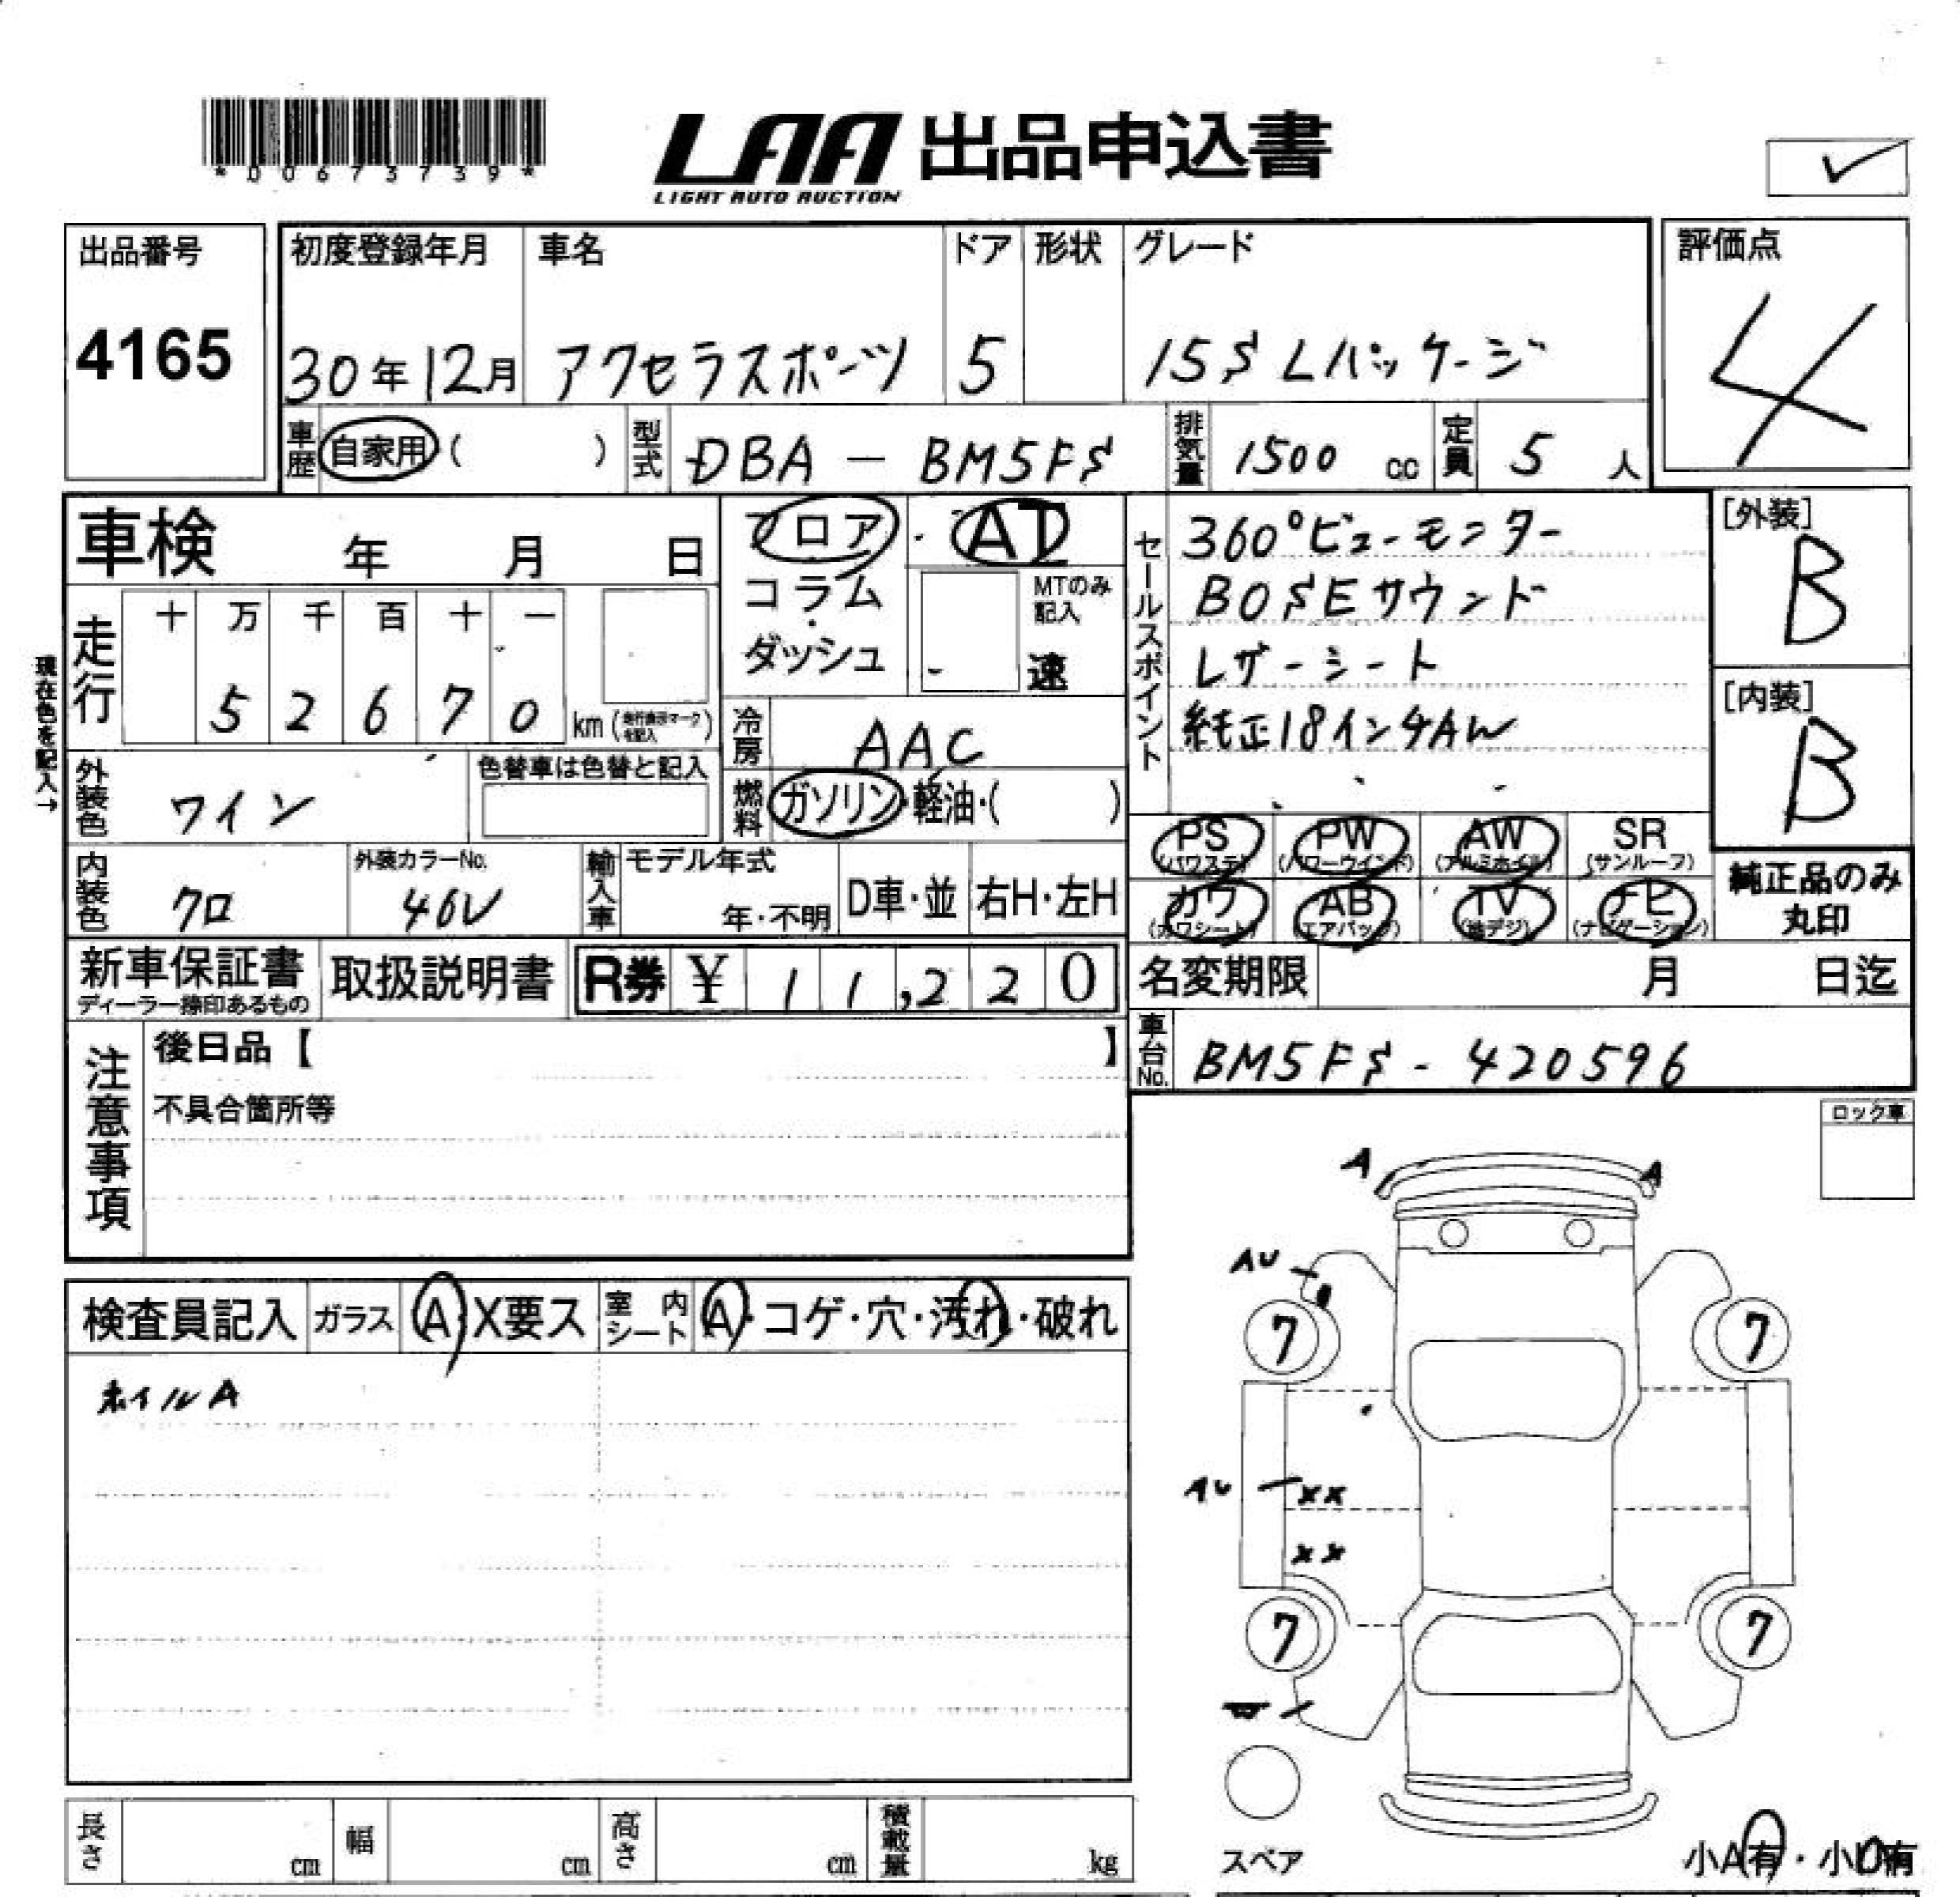 *00673739*
LAA 出品申込書
LIGHT AUTO AUCTION
出品番号
4165
初度登録年月 車名 ドア 形状 グレード
30年12月 アクセラスポーツ 5 15S Lパッケージ
評価点
4
車歴 自家用( ) 型式 DBA - BM5FS 排気量 1500 cc 定員 5 人
車検 年 月 日
フロア ・ AT
コラム
・
ダッシュ
MTのみ
記入
速
セールスポイント
360°ビューモニター
BOSEサウンド
レザーシート
純正18インチAW
[外装]
B
[内装]
B
現在色を記入→
走行 十 万 千 百 十 一
5 2 6 7 0 km (走行表示マークを記入)
冷房 AAC
外装色 ワイン
色替車は色替と記入
燃料 ガソリン・軽油・( )
PS AW PW SR
(パワステ) (パワーウインド) (アルミホイル) (サンルーフ)
カワ AB TV ナビ
(カワシート) (エアバック) (地デジ) (ナビゲーション)
純正品のみ
丸印
内装色 クロ
外装カラーNo.
46V
輸入車 モデル年式
年・不明 D車・並 右H・左H
新車保証書
ディーラー捺印あるもの
取扱説明書 R券 ¥ 11,220
名変期限 月 日迄
車台No. BM5FS - 420596
注意事項
後日品【 】
不具合箇所等
ロック車
検査員記入 ガラス A X要ス 室内シート A・コゲ・穴・汚れ・破れ
ホイルA
A A
AU
7 7
AU XX
XX
7 7
スペア
小A有・小U有
長さ cm 幅 cm 高さ cm 積載量 kg